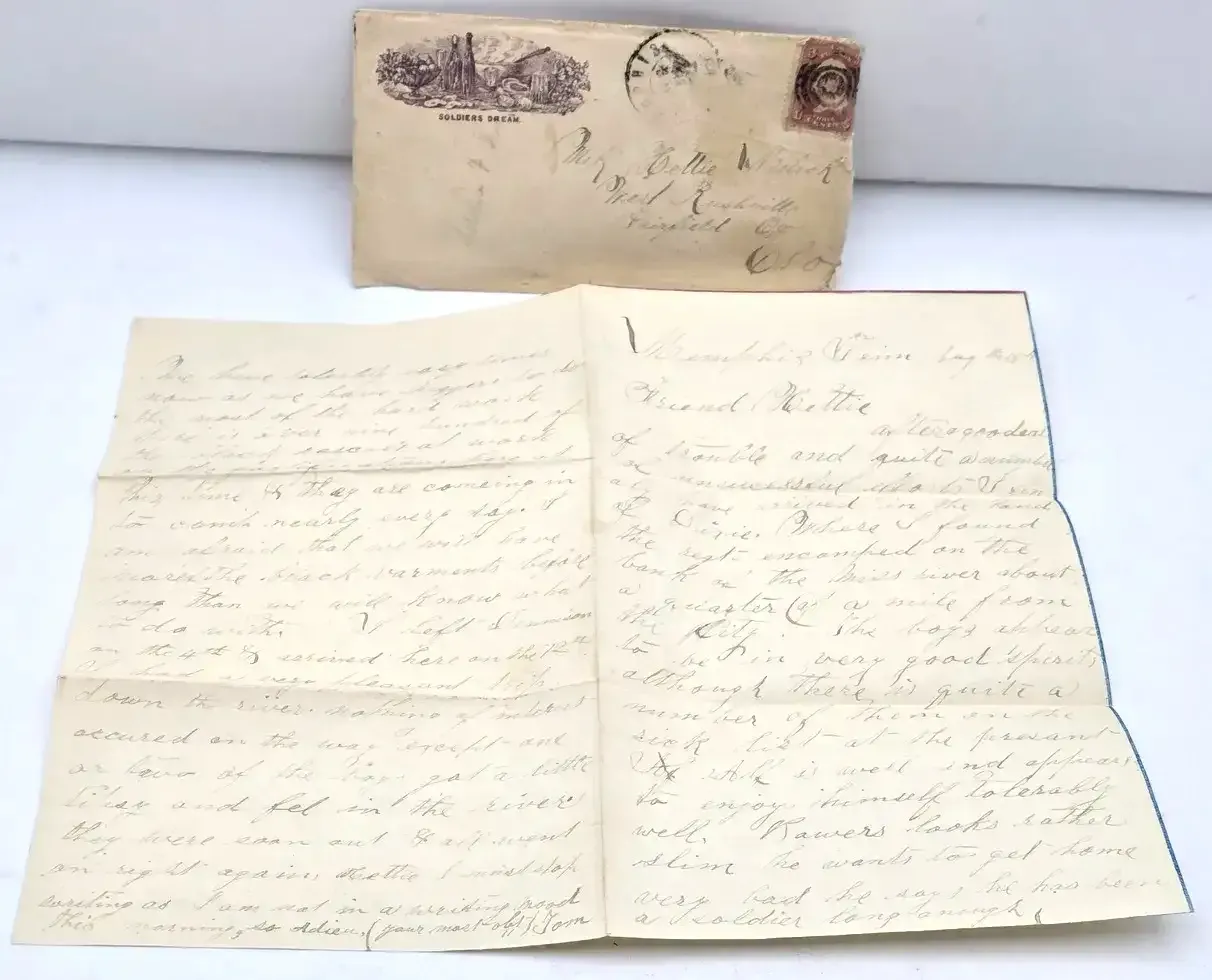 SOLDIERS DREAM.
Hettie
West Rushville
Fairfield Co
Ohio
Memphis Tenn
Friend Hettie
after a good deal
of trouble and quite a number
of unsuccessful I in
have arrived in the land
of Dixie. Where I found
the regt encamped on the
bank of the Miss river about
a quarter of a mile from
the City. The boys appear
to be in very good spirits
although there is quite a
number of them on the
sick list at the present
is well and appears
to enjoy himself tolerably
well. Rowers looks rather
slim he wants to get home
very bad he says he has been
a soldier long anough
We have times
now as we have niggers to do
the most of the hard work
there is over nine hundred of
the at work
on the here at
this time & they are comeing in
to camp nearly every day. I
am afraid that we will have
more the black varments before
long than we will know what
to do with. I left Dennison
on the 4th & arrived here on the 12th
I had a very pleasant trip
down the river. nothing of interest
occured on the way except one
or two of the boys got a little
tikey and fel in the river
they were soon out & all went
on right again, Hettie I must stop
writing as I am not in a writing mood
this morning, so adieu. (your most obt) Tom